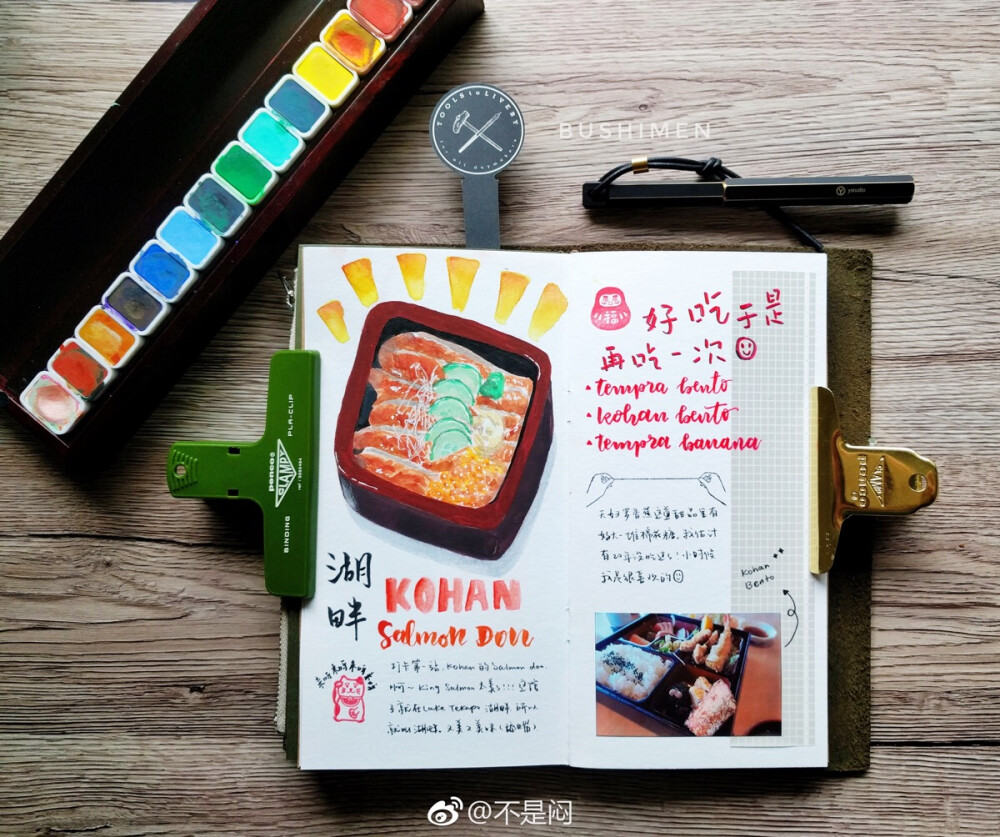 TOOLS to LIVEBY
BUSHIMEN
ystudio
penco®
CLAMPY
PLA-CLIP
BINDING
湖
畔
KOHAN
Salmon Don
打卡第一站, Kohan 的 Salmon don.
啊~ King Salmon 太美了!!! 里
就在 Lake Tekapo 湖畔 所以
就叫湖畔. 又美又美味
福
好吃于是
再吃一次
• tempra bento
• kohan bento
• tempra banana
天妇罗香蕉这道甜品里有
好大一堆棉花糖. 我估计
有20年没吃过了! 小时候
我是很喜欢的
Kohan
Bento
@不是闷